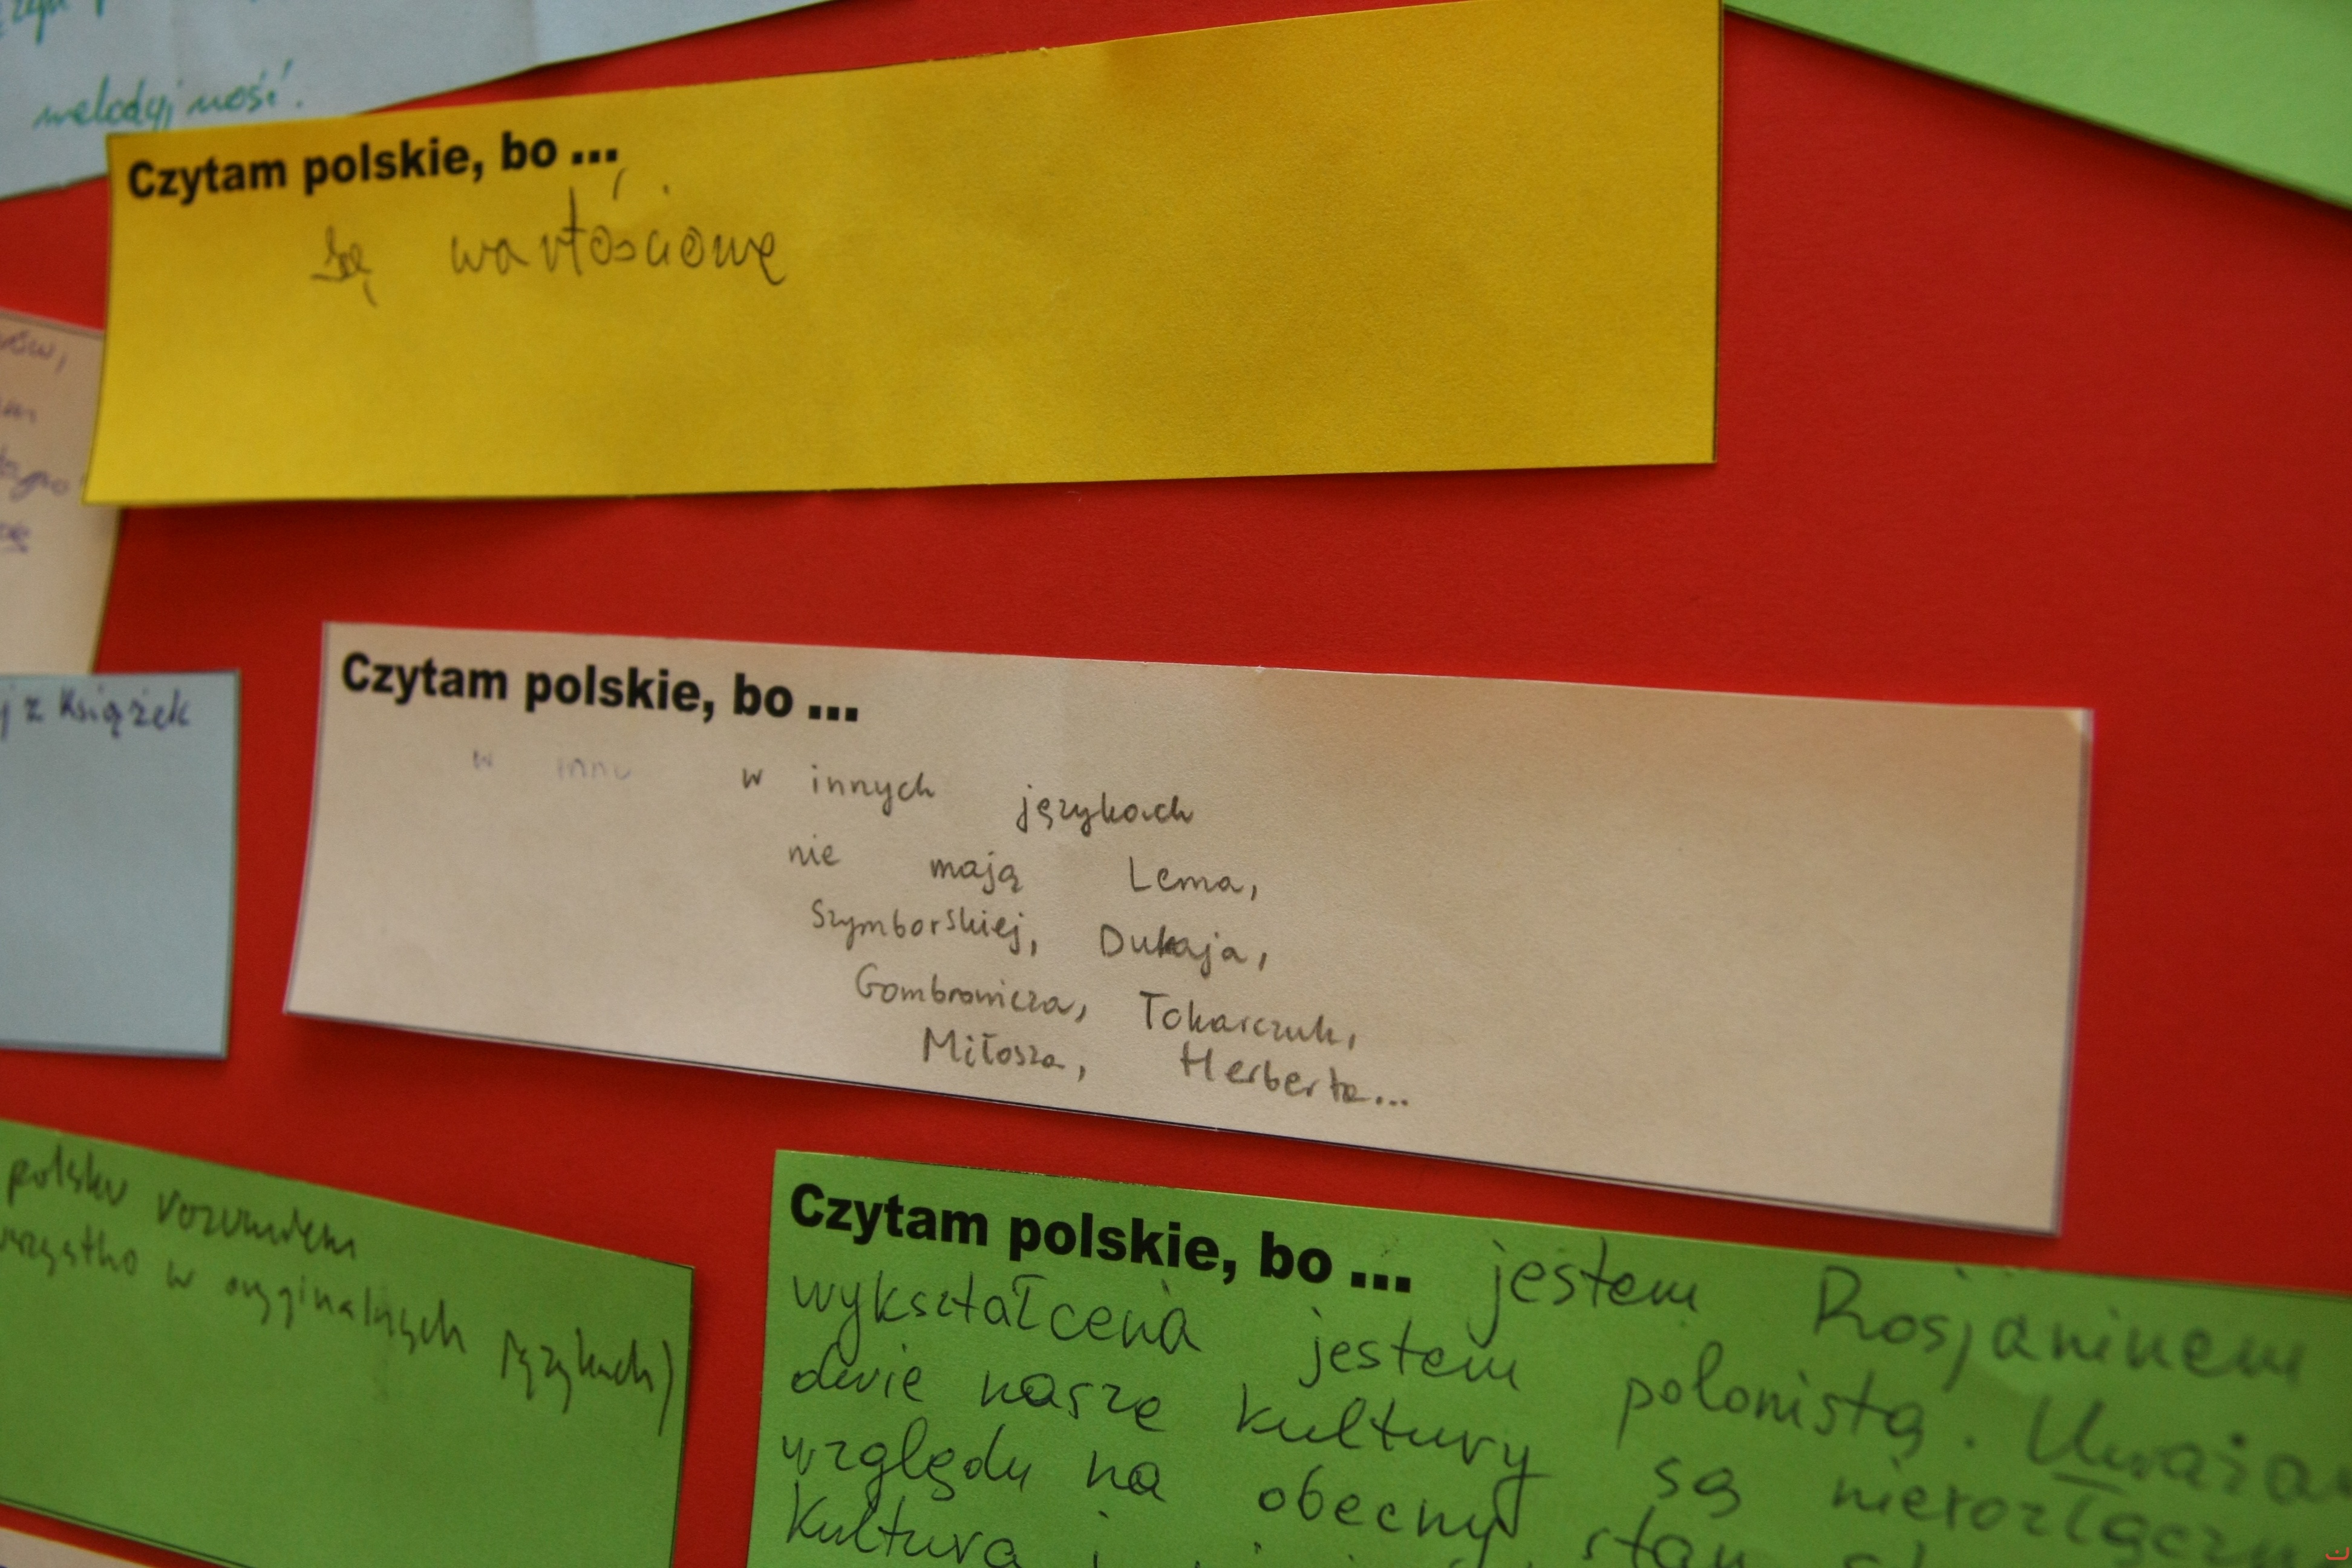 melodyjność!
Czytam polskie, bo ...
są wartościowe
j z Książek
Czytam polskie, bo ...
w inny w innych językach
nie mają Lema,
Szymborskiej, Dukaja,
Gombrowicza, Tokarczuk,
Miłosza, Herberta...
polsku rozumiem
wszystko w oryginalnych językach)
Czytam polskie, bo ... jestem Rosjaninem
wykształcenia jestem polonistą. Uważa
dwie nasze kultury są nierozłączn
względu na obecny stan
Kultura i